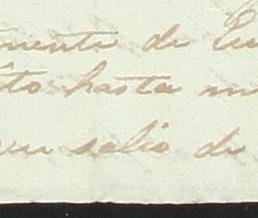 mente de Eu
to hasta m
salio de